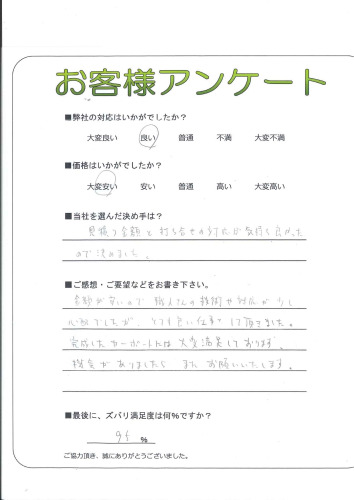 お客様アンケート
■弊社の対応はいかがでしたか？
大変良い 良い 普通 不満 大変不満
■価格はいかがでしたか？
大変安い 安い 普通 高い 大変高い
■当社を選んだ決め手は？
見積り金額と打ち合せの対応が気持ち良かった
ので決めました。
■ご感想・ご要望などをお書き下さい。
金額が安いので職人さんの技術や対応が少し
心配でしたが、とても良い仕事をして頂きました。
完成したカーポートには大変満足しております。
機会がありましたらまたお願いいたします。
■最後に、ズバリ満足度は何％ですか？
95 ％
ご協力頂き、誠にありがとうございました。